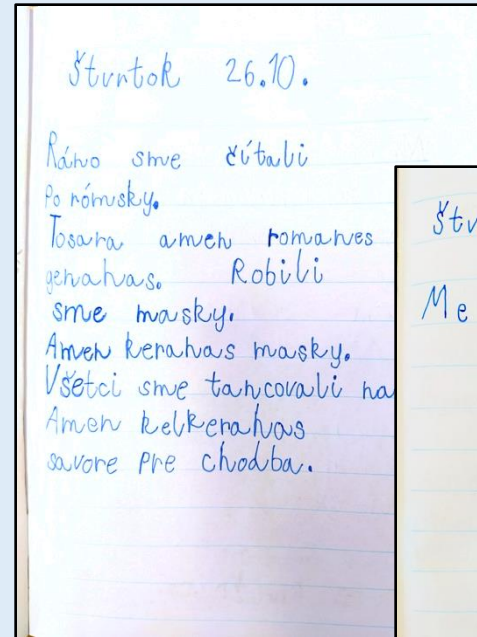 Štvrtok 26.10.
Ráno sme čítali
Po rómsky.
Tosara amen romanes
genahas. Robili
sme masky.
Amen kerahas masky.
Všetci sme tancovali na
Amen kelkerahas
savore pre chodba.
Štv
Me